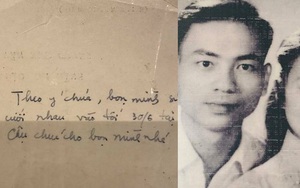 Theo ý chúa, bọn mình sẽ
cưới nhau vào tối 30/6 tại
Cầu chúa cho bọn mình nhé